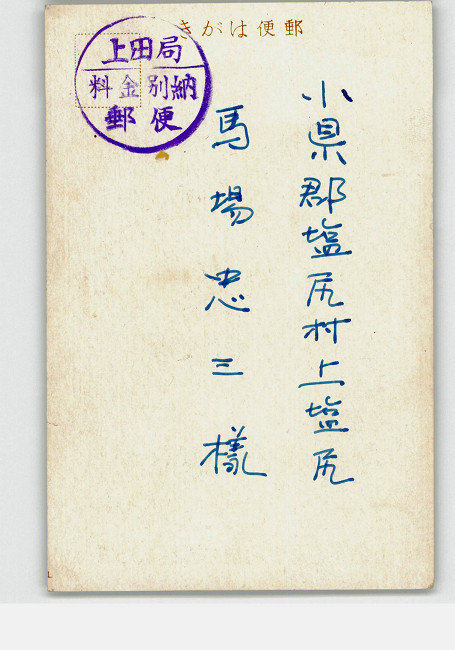 郵便はがき
上田局
料金別納
郵便
小県郡塩尻村上塩尻
馬場忠三様